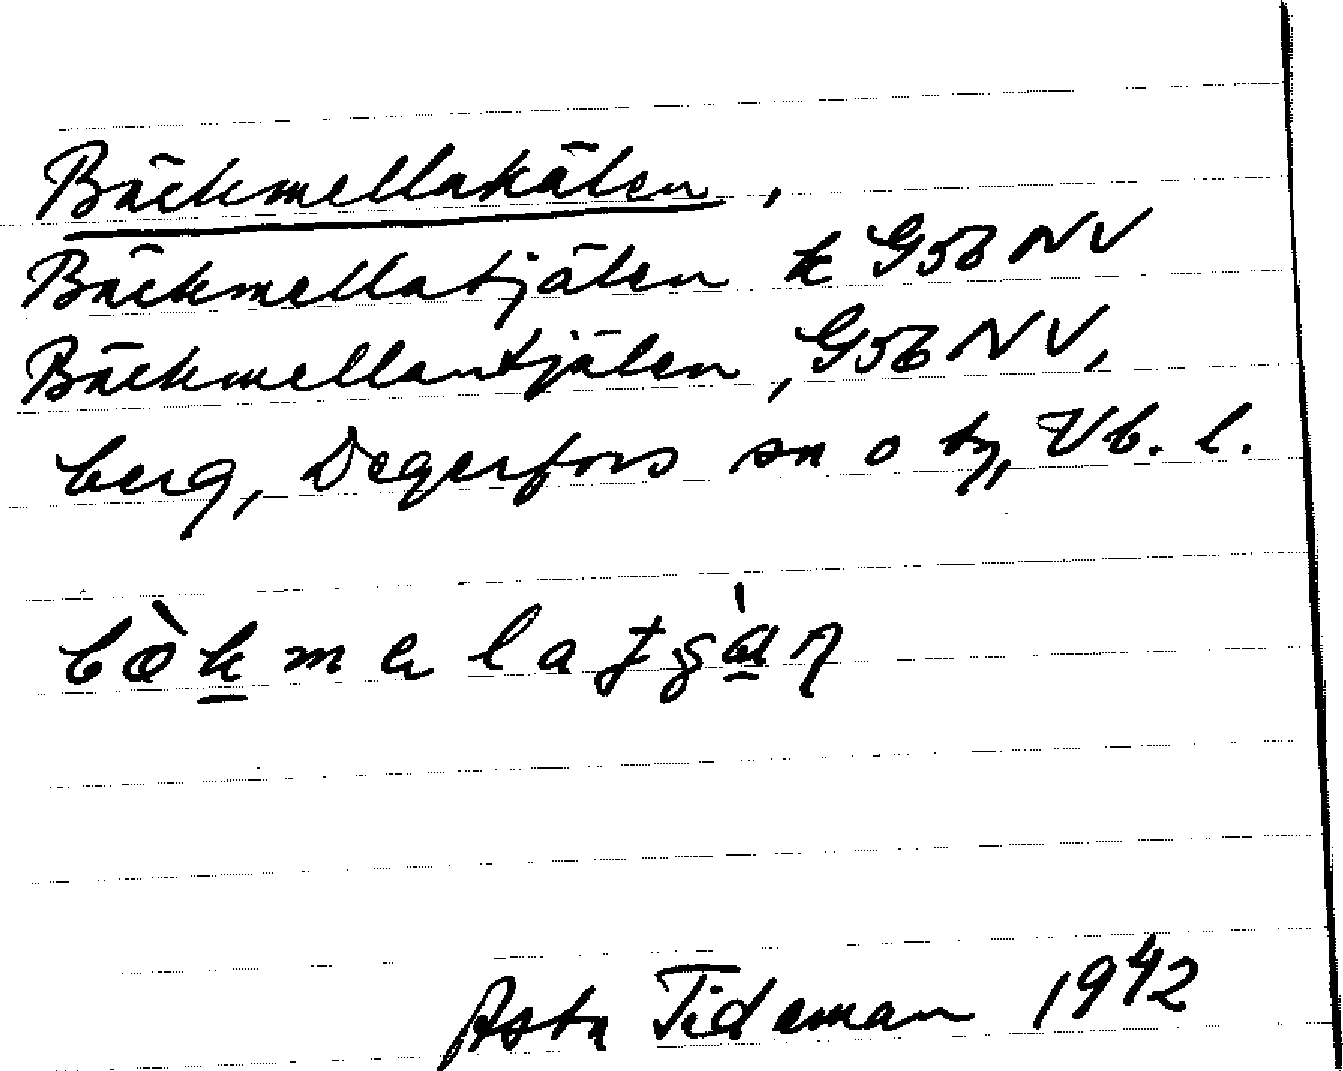 Bäckmellakälen,
Bäckmellatjälen k G56 NV
Bäckmellantjälen, G56 NV,
berg, Degerfors sn o tg, Vb. l.
Asta Tideman 1942